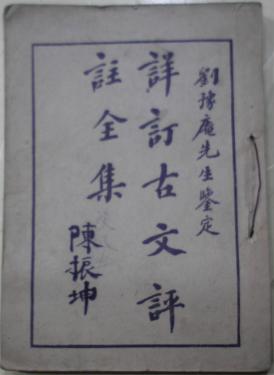 劉豫庵先生鑒定
詳訂古文評
註全集
陳振坤